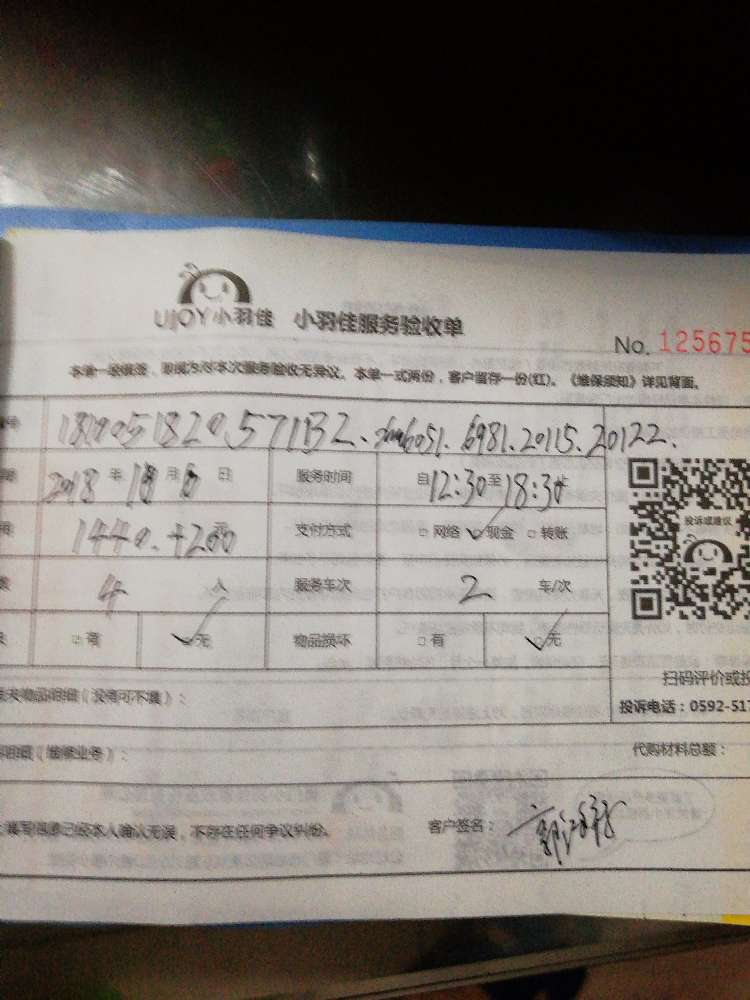 UJOY小羽佳 小羽佳服务验收单
No. 125675
本单一经签，即视为对本次服务验收无异议。本单一式两份，客户留存一份(红)。《维保须知》详见背面。
号 6981.20115.20122.
2018年10月 日 服务时间 自12:30至18:30止
1440.+200元 支付方式 □网络 ✓现金 □转账
投诉或建议
4人 服务车次 2 车/次
□有 ✓无 物品损坏 □有 ✓无
扫码评价或投
失物品明细（没有可不填）：
投诉电话：0592-517
明细（维修业务）：
代购材料总额：
填写信息已经本人确认无误，不存在任何争议纠纷。 客户签名：